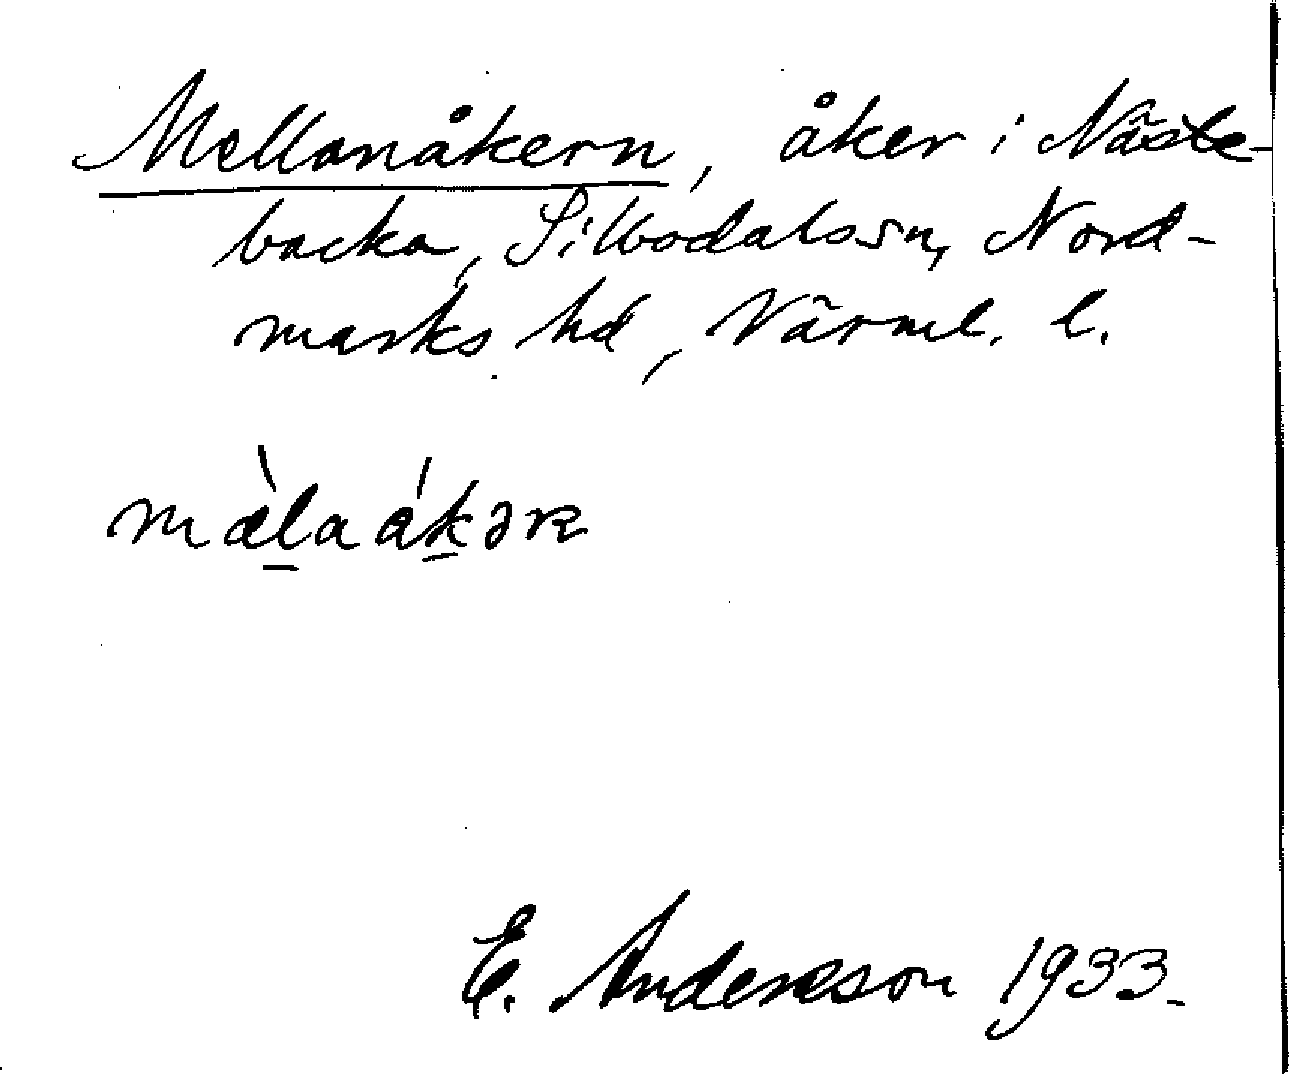 Mellanåkern, åker i Näste-
backa, Silbodals sn, Nord-
marks hd, Värml. l.
mæ̀laákər
E. Andersson 1933.